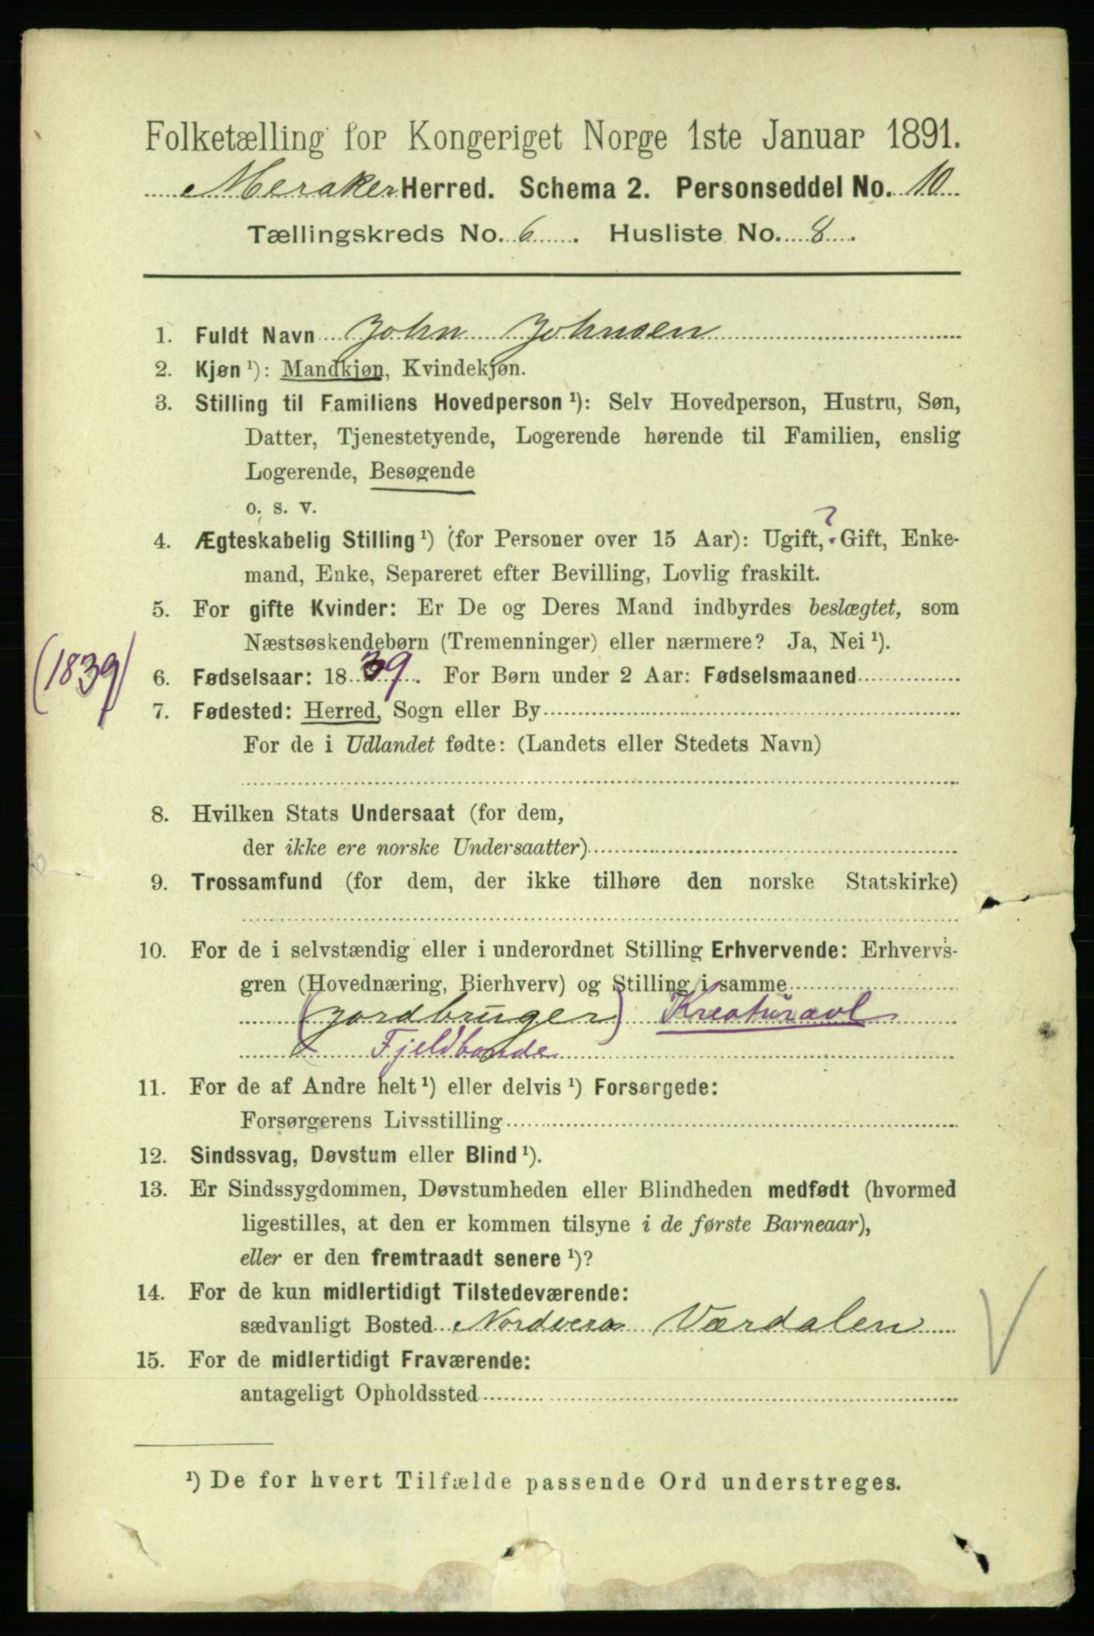 Folketælling for Kongeriget Norge 1ste Januar 1891.
Meraker Herred. Schema 2. Personseddel No. 10
Tællingskreds No. 6. Husliste No. 8.
1. Fuldt Navn John Johnsen
2. Kjøn ¹): Mandkjøn, Kvindekjøn.
3. Stilling til Familiens Hovedperson ¹): Selv Hovedperson, Hustru, Søn,
Datter, Tjenestetyende, Logerende hørende til Familien, enslig
Logerende, Besøgende
o. s. v.
?
4. Ægteskabelig Stilling ¹) (for Personer over 15 Aar): Ugift, Gift, Enke-
mand, Enke, Separeret efter Bevilling, Lovlig fraskilt.
5. For gifte Kvinder: Er De og Deres Mand indbyrdes beslægtet, som
Næstsøskendebørn (Tremenninger) eller nærmere? Ja, Nei ¹).
(1839)
6. Fødselsaar: 1839. For Børn under 2 Aar: Fødselsmaaned
7. Fødested: Herred, Sogn eller By
For de i Udlandet fødte: (Landets eller Stedets Navn)
8. Hvilken Stats Undersaat (for dem,
der ikke ere norske Undersaatter)
9. Trossamfund (for dem, der ikke tilhøre den norske Statskirke)
10. For de i selvstændig eller i underordnet Stilling Erhvervende: Erhvervs-
gren (Hovednæring, Bierhverv) og Stilling i samme
(Jordbruger) Kreaturavl
Fjeldbonde
11. For de af Andre helt ¹) eller delvis ¹) Forsørgede:
Forsørgerens Livsstilling
12. Sindssvag, Døvstum eller Blind ¹).
13. Er Sindssygdommen, Døvstumheden eller Blindheden medfødt (hvormed
ligestilles, at den er kommen tilsyne i de første Barneaar),
eller er den fremtraadt senere ¹)?
14. For de kun midlertidigt Tilstedeværende:
sædvanligt Bosted Nordvera Værdalen
15. For de midlertidigt Fraværende:
antageligt Opholdssted
¹) De for hvert Tilfælde passende Ord understreges.